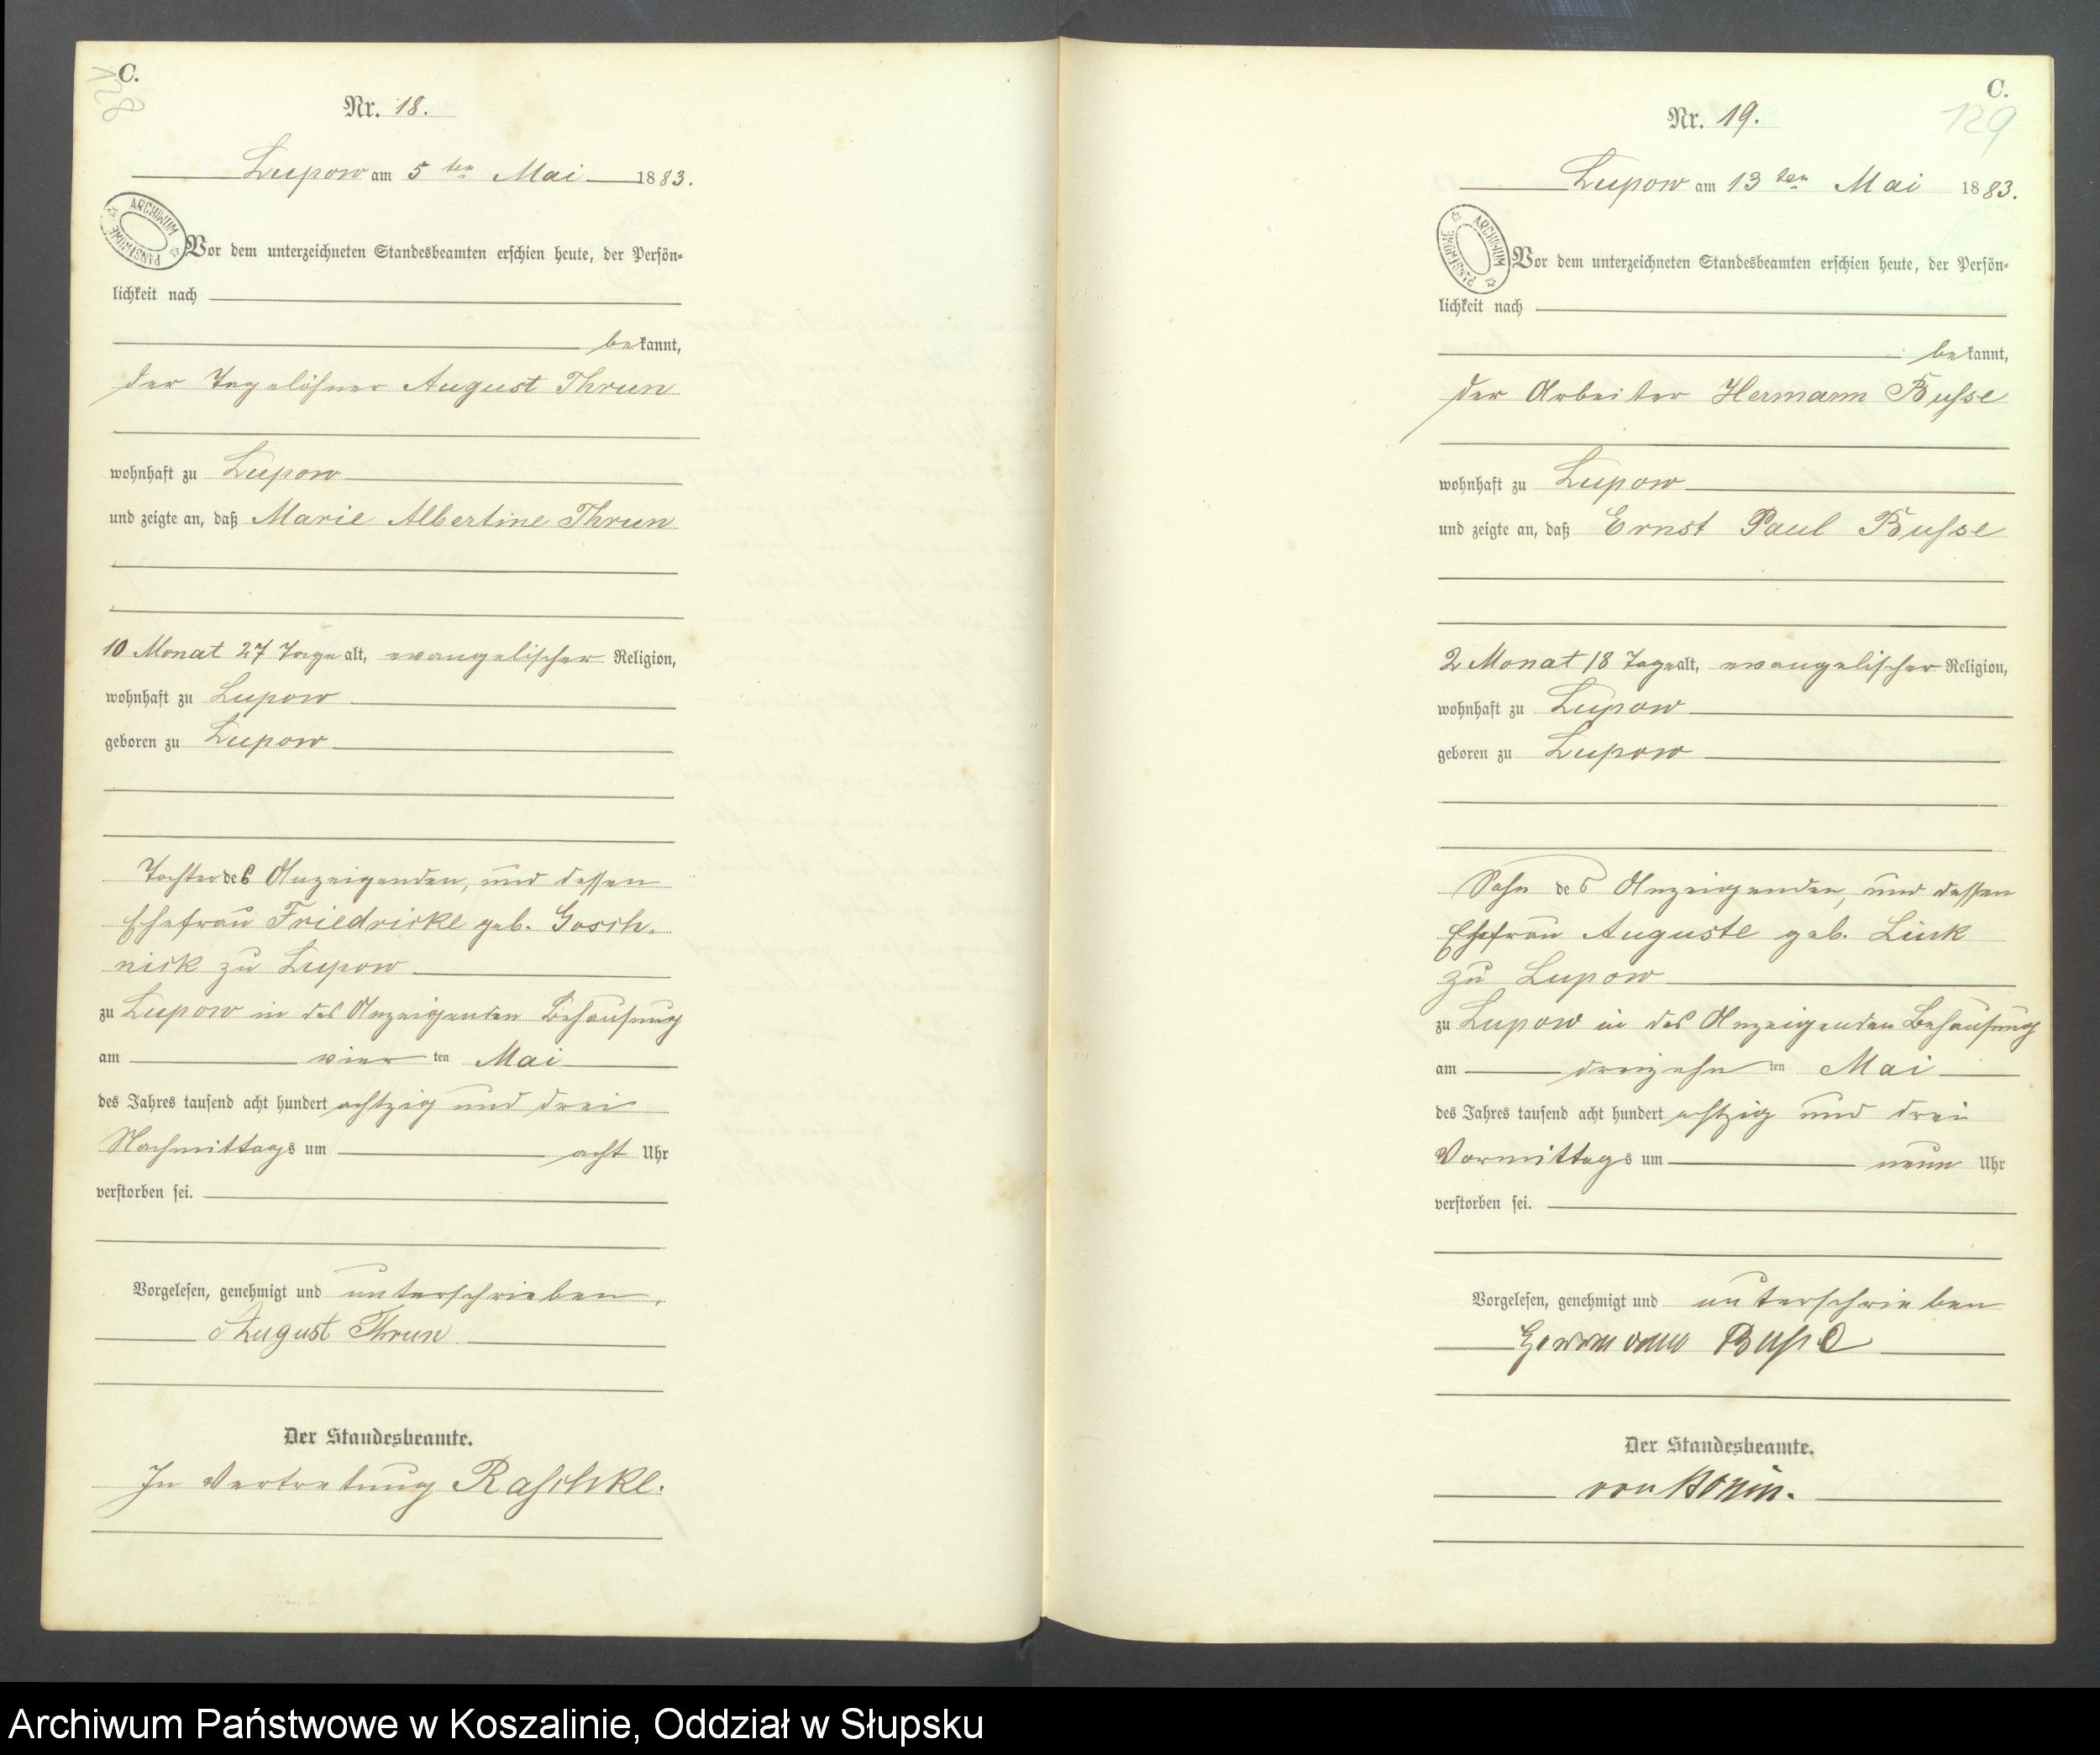 C.
128
Nr. 18.
Lupow am 5ten Mai 1883.
ARCHIWUM PAŃSTWOWE
Vor dem unterzeichneten Standesbeamten erschien heute, der Persön-
lichkeit nach
bekannt,
der Tagelöhner August Thrun
wohnhaft zu Lupow
und zeigte an, daß Marie Albertine Thrun
10 Monat 27 Tage alt, evangelischer Religion,
wohnhaft zu Lupow
geboren zu Lupow
Tochter des Anzeigenden, und dessen
Ehefrau Friedricke geb. Gosch-
nick zu Lupow
zu Lupow in des Anzeigenden Behausung
am vierten Mai
des Jahres tausend acht hundert achtzig und drei
Nachmittags um acht Uhr
verstorben sei.
Vorgelesen, genehmigt und unterschrieben,
August Thrun
Der Standesbeamte.
In Vertretung Raschke.
C.
129
Nr. 19.
Lupow am 13ten Mai 1883.
ARCHIWUM PAŃSTWOWE
Vor dem unterzeichneten Standesbeamten erschien heute, der Persön-
lichkeit nach
bekannt,
der Arbeiter Hermann Busse
wohnhaft zu Lupow
und zeigte an, daß Ernst Paul Busse
2 Monat 18 Tage alt, evangelischer Religion,
wohnhaft zu Lupow
geboren zu Lupow
Sohn des Anzeigenden, und dessen
Ehefrau Auguste geb. Lück
zu Lupow
zu Lupow in des Anzeigenden Behausung
am dreizehnten Mai
des Jahres tausend acht hundert achtzig und drei
Vormittags um neun Uhr
verstorben sei.
Vorgelesen, genehmigt und unterschrieben
Herrmann Busse
Der Standesbeamte.
von Bonin.
Archiwum Państwowe w Koszalinie, Oddział w Słupsku